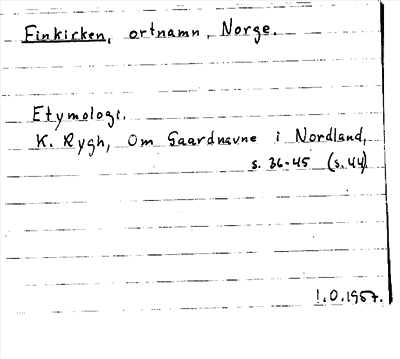 Finkirken, ortnamn, Norge.
Etymologi.
K. Rygh, Om Gaardnavne i Nordland,
s. 36-45 (s. 44)
I.O.1957.